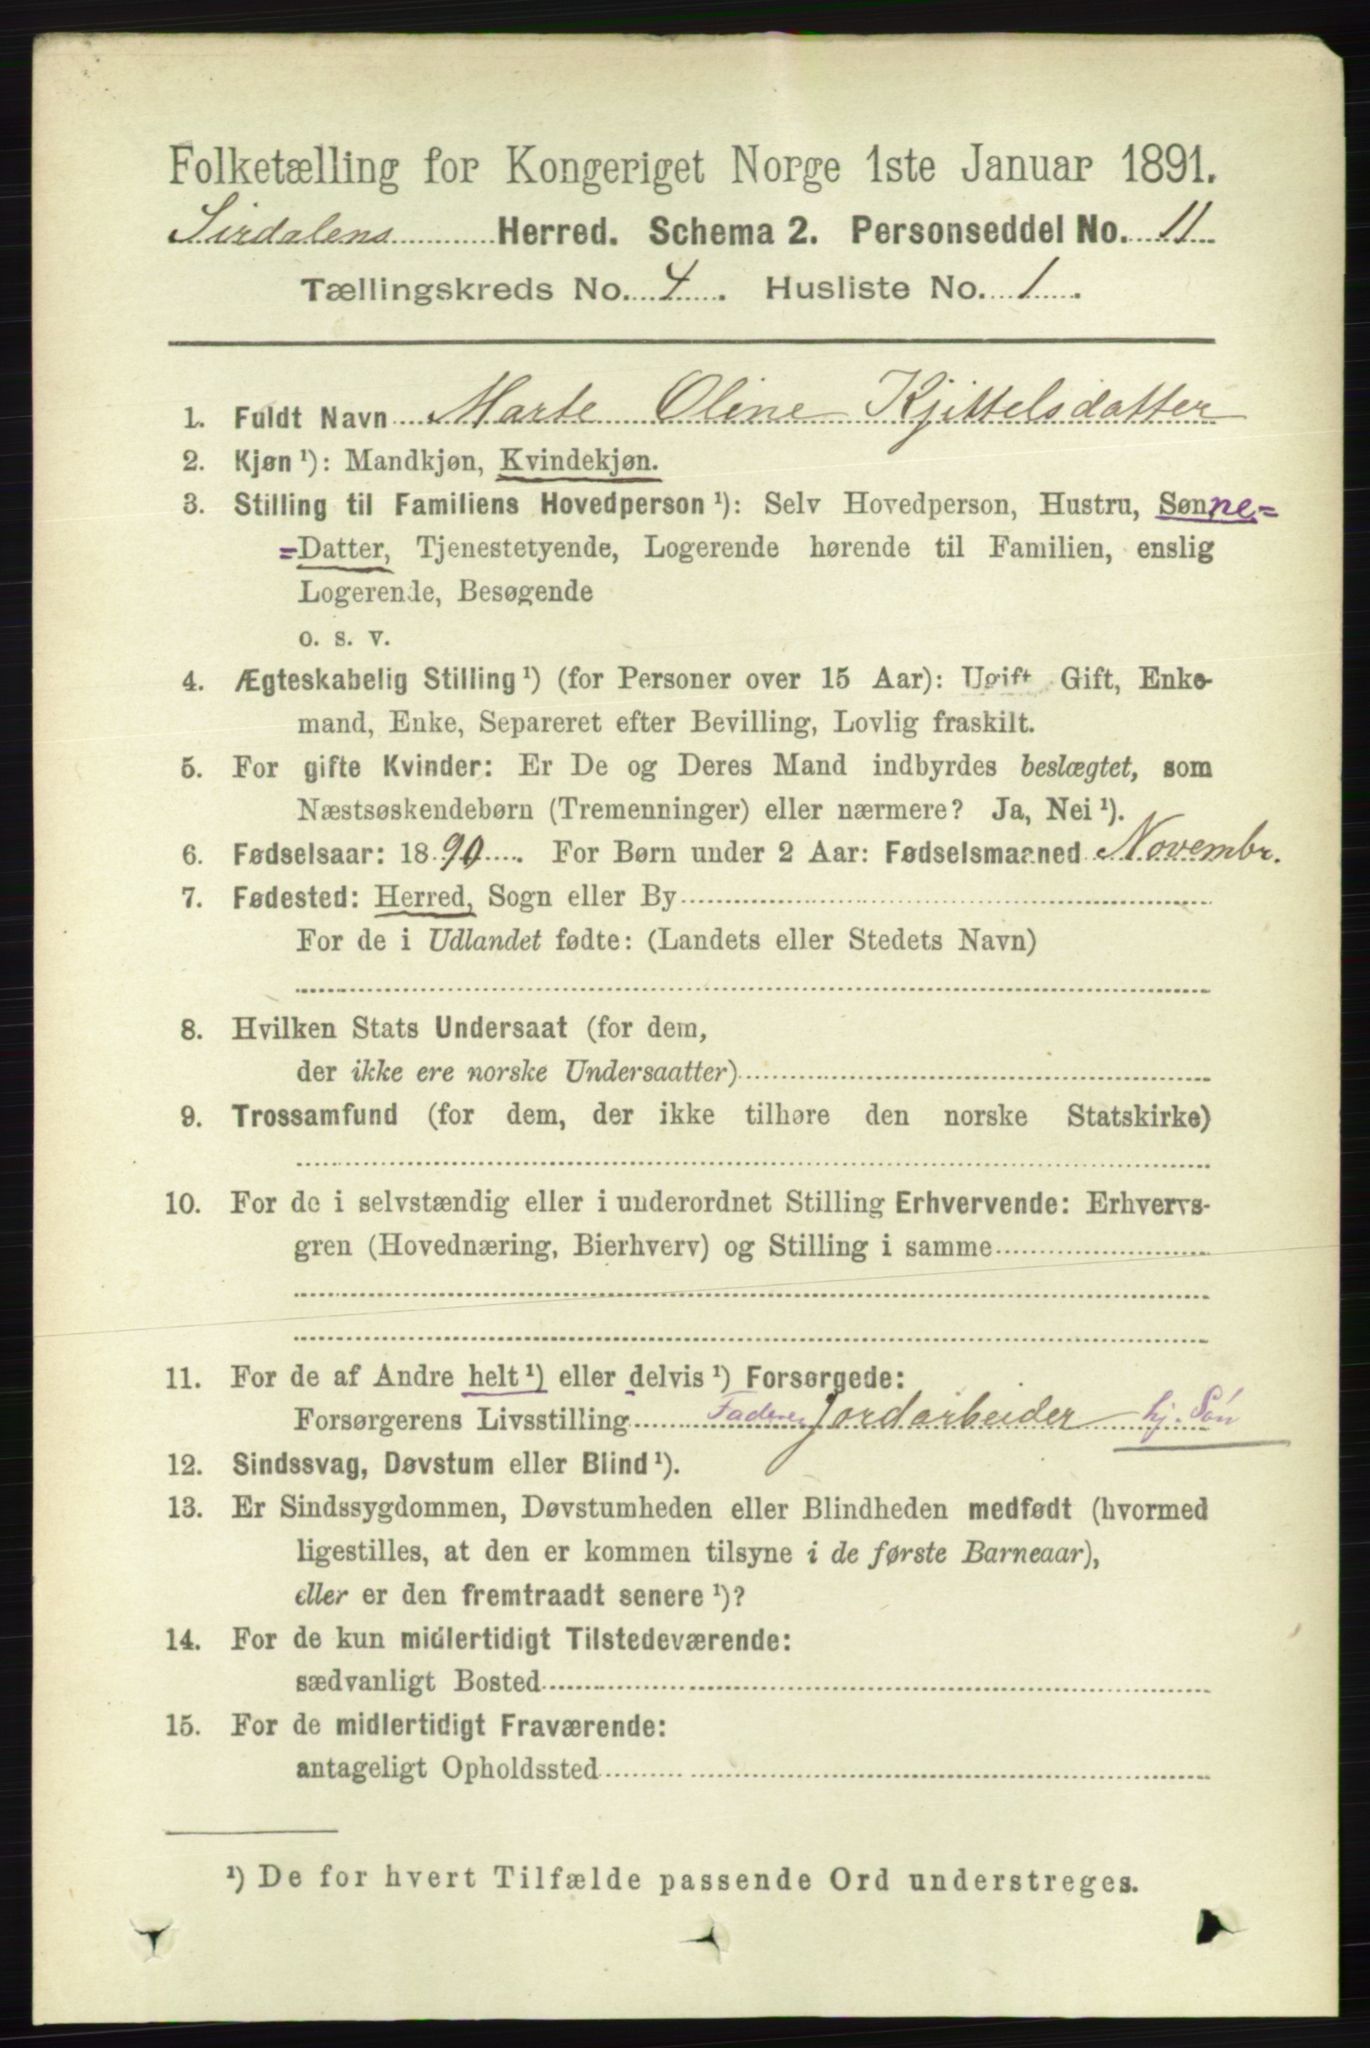 Folketælling for Kongeriget Norge 1ste Januar 1891.
Sirdalens Herred. Schema 2. Personseddel No. 11
Tællingskreds No. 4. Husliste No. 1.
1. Fuldt Navn Marte Oline Kjittelsdatter
2. Kjøn ¹): Mandkjøn, Kvindekjøn.
3. Stilling til Familiens Hovedperson ¹): Selv Hovedperson, Hustru, Sønne=
=Datter, Tjenestetyende, Logerende hørende til Familien, enslig
Logerende, Besøgende
o. s. v.
4. Ægteskabelig Stilling ¹) (for Personer over 15 Aar): Ugift Gift, Enke-
mand, Enke, Separeret efter Bevilling, Lovlig fraskilt.
5. For gifte Kvinder: Er De og Deres Mand indbyrdes beslægtet, som
Næstsøskendebørn (Tremenninger) eller nærmere? Ja, Nei ¹).
6. Fødselsaar: 1890. For Børn under 2 Aar: Fødselsmaaned Novembr.
7. Fødested: Herred, Sogn eller By
For de i Udlandet fødte: (Landets eller Stedets Navn)
8. Hvilken Stats Undersaat (for dem,
der ikke ere norske Undersaatter)
9. Trossamfund (for dem, der ikke tilhøre den norske Statskirke)
10. For de i selvstændig eller i underordnet Stilling Erhvervende: Erhvervs-
gren (Hovednæring, Bierhverv) og Stilling i samme
11. For de af Andre helt ¹) eller delvis ¹) Forsørgede:
Forsørgerens Livsstilling Faderen Jordarbeider hj. Søn
12. Sindssvag, Døvstum eller Blind ¹).
13. Er Sindssygdommen, Døvstumheden eller Blindheden medfødt (hvormed
ligestilles, at den er kommen tilsyne i de første Barneaar),
eller er den fremtraadt senere ¹)?
14. For de kun midlertidigt Tilstedeværende:
sædvanligt Bosted
15. For de midlertidigt Fraværende:
antageligt Opholdssted
¹) De for hvert Tilfælde passende Ord understreges.